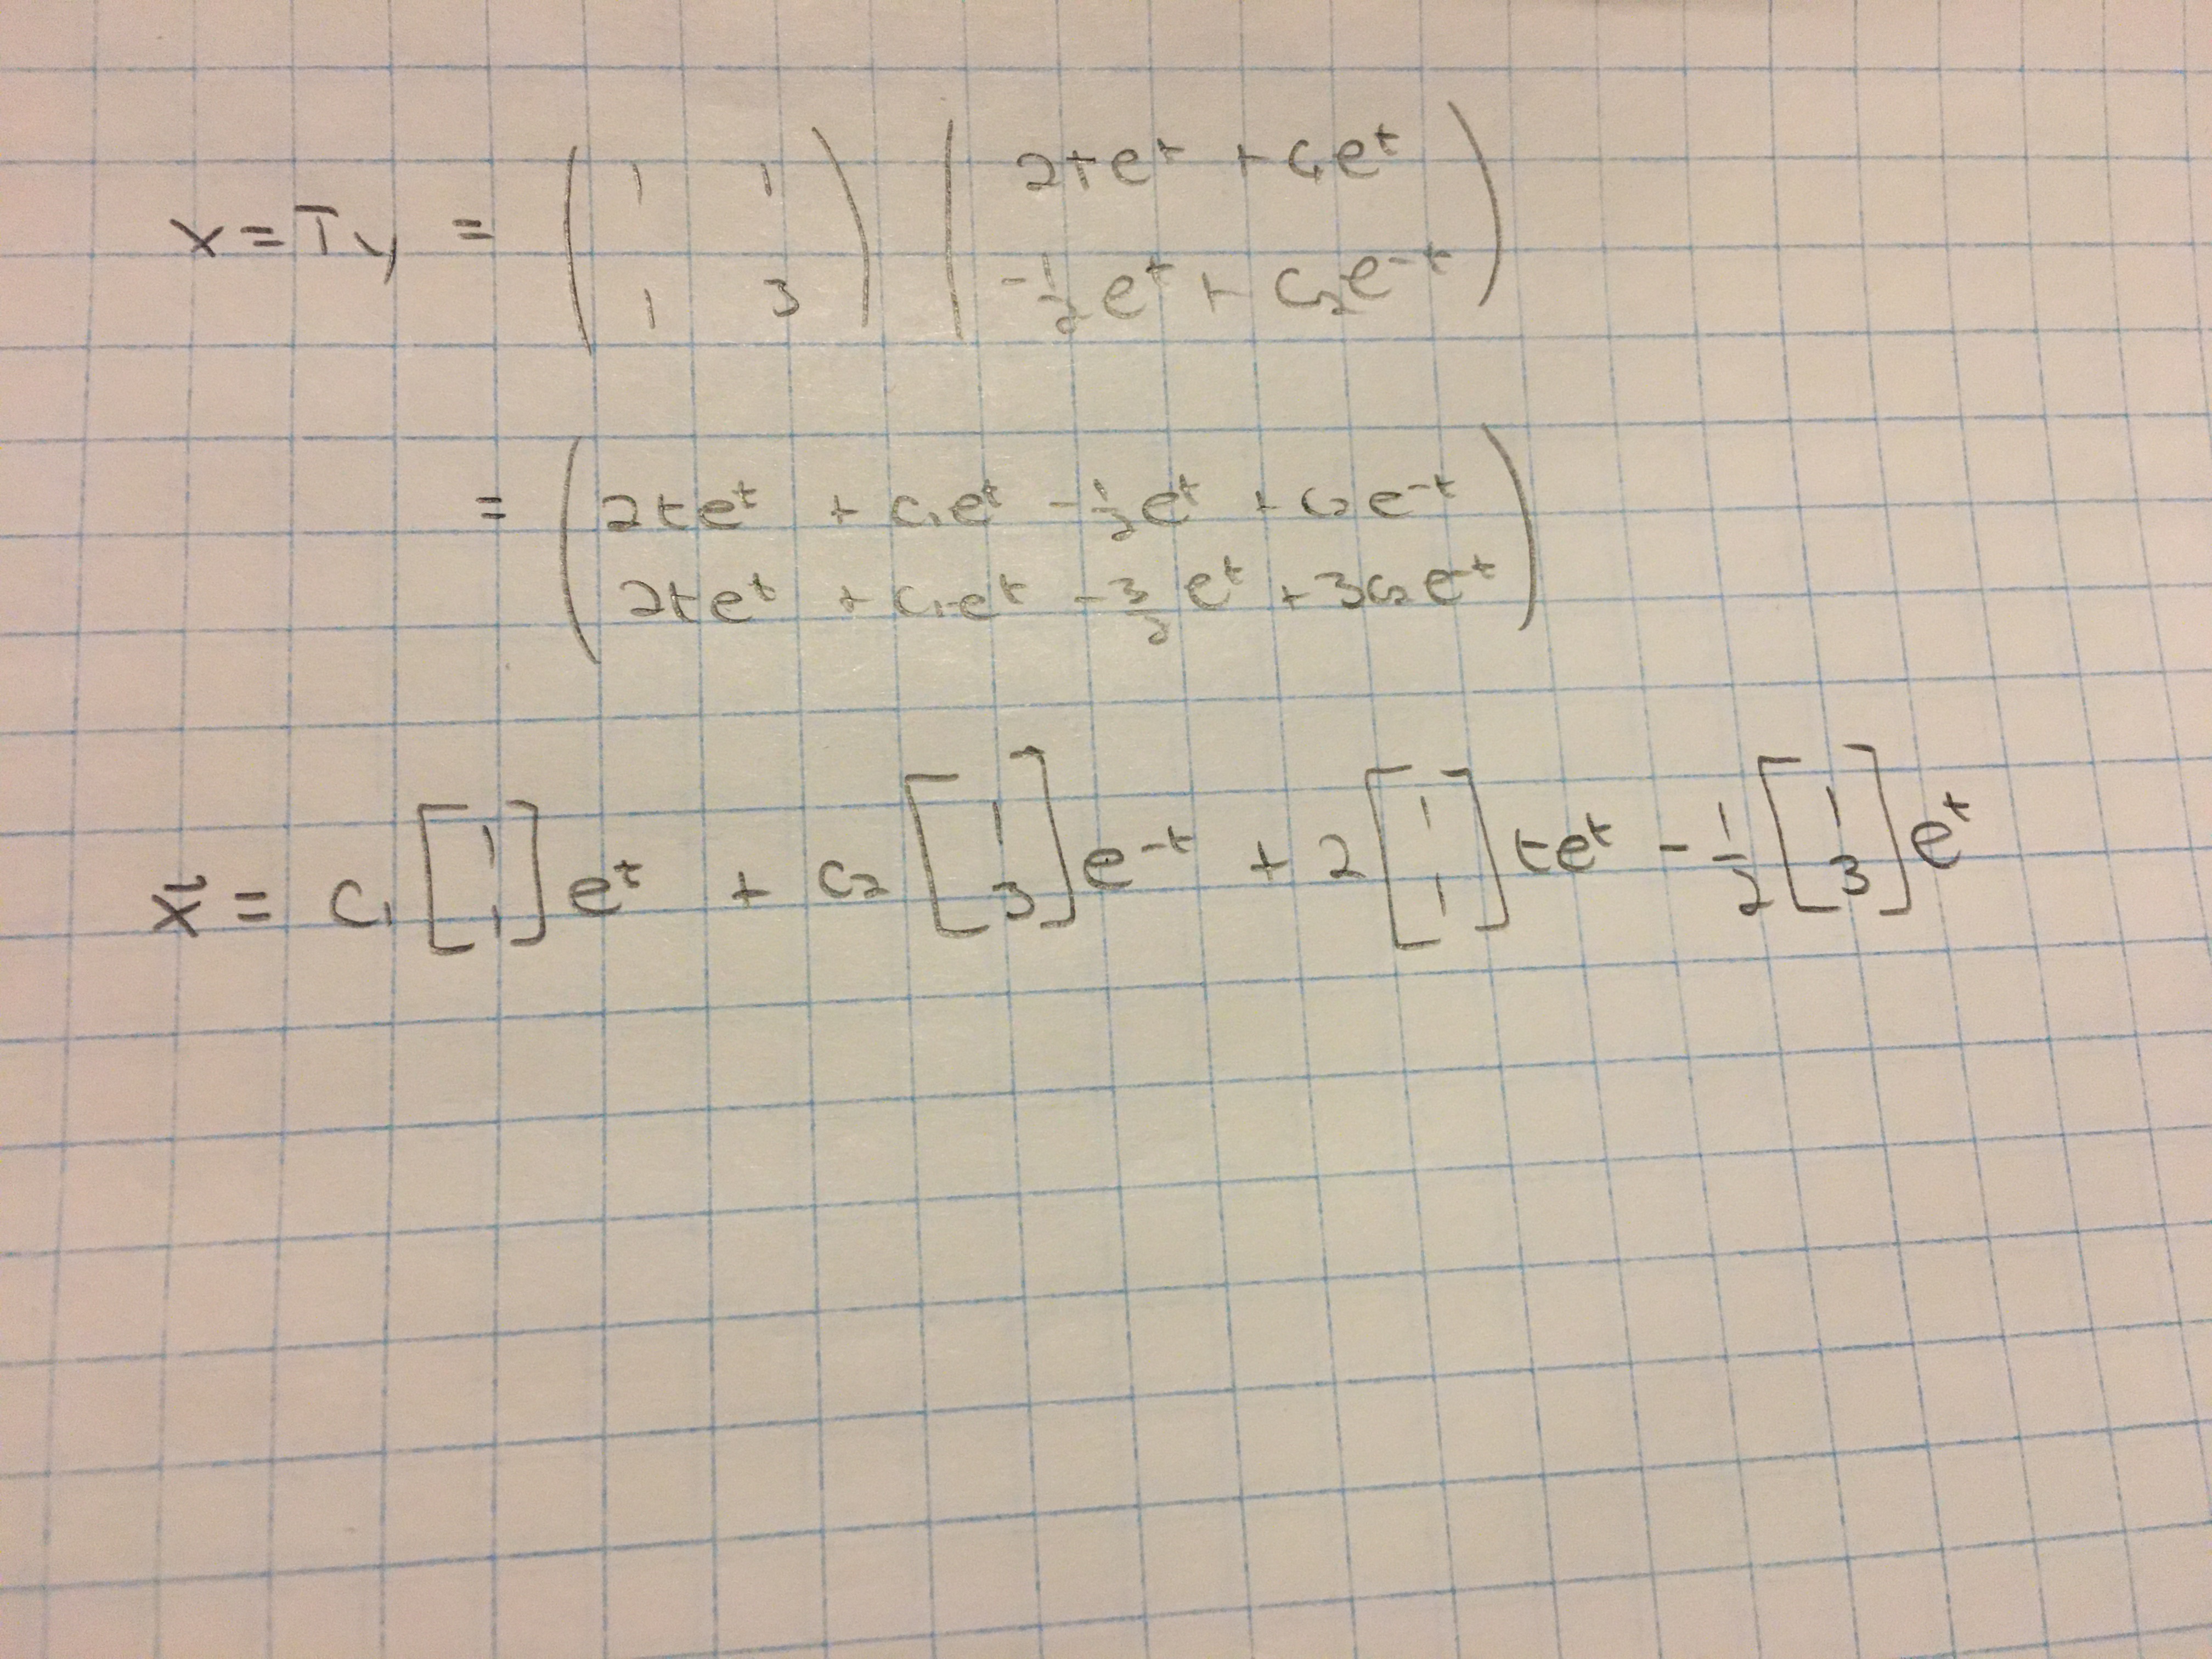 x = Ty = ( 1 1 ; 1 3 ) ( 2te^t + c₁e^t ; -1/2 e^t + c₂e^-t )
= ( 2te^t + c₁e^t - 1/2 e^t + c₂e^-t
2te^t + c₁e^t - 3/2 e^t + 3c₂e^-t )
x⃗ = c₁ [ 1 ; 1 ] e^t + c₂ [ 1 ; 3 ] e^-t + 2 [ 1 ; 1 ] te^t - 1/2 [ 1 ; 3 ] e^t